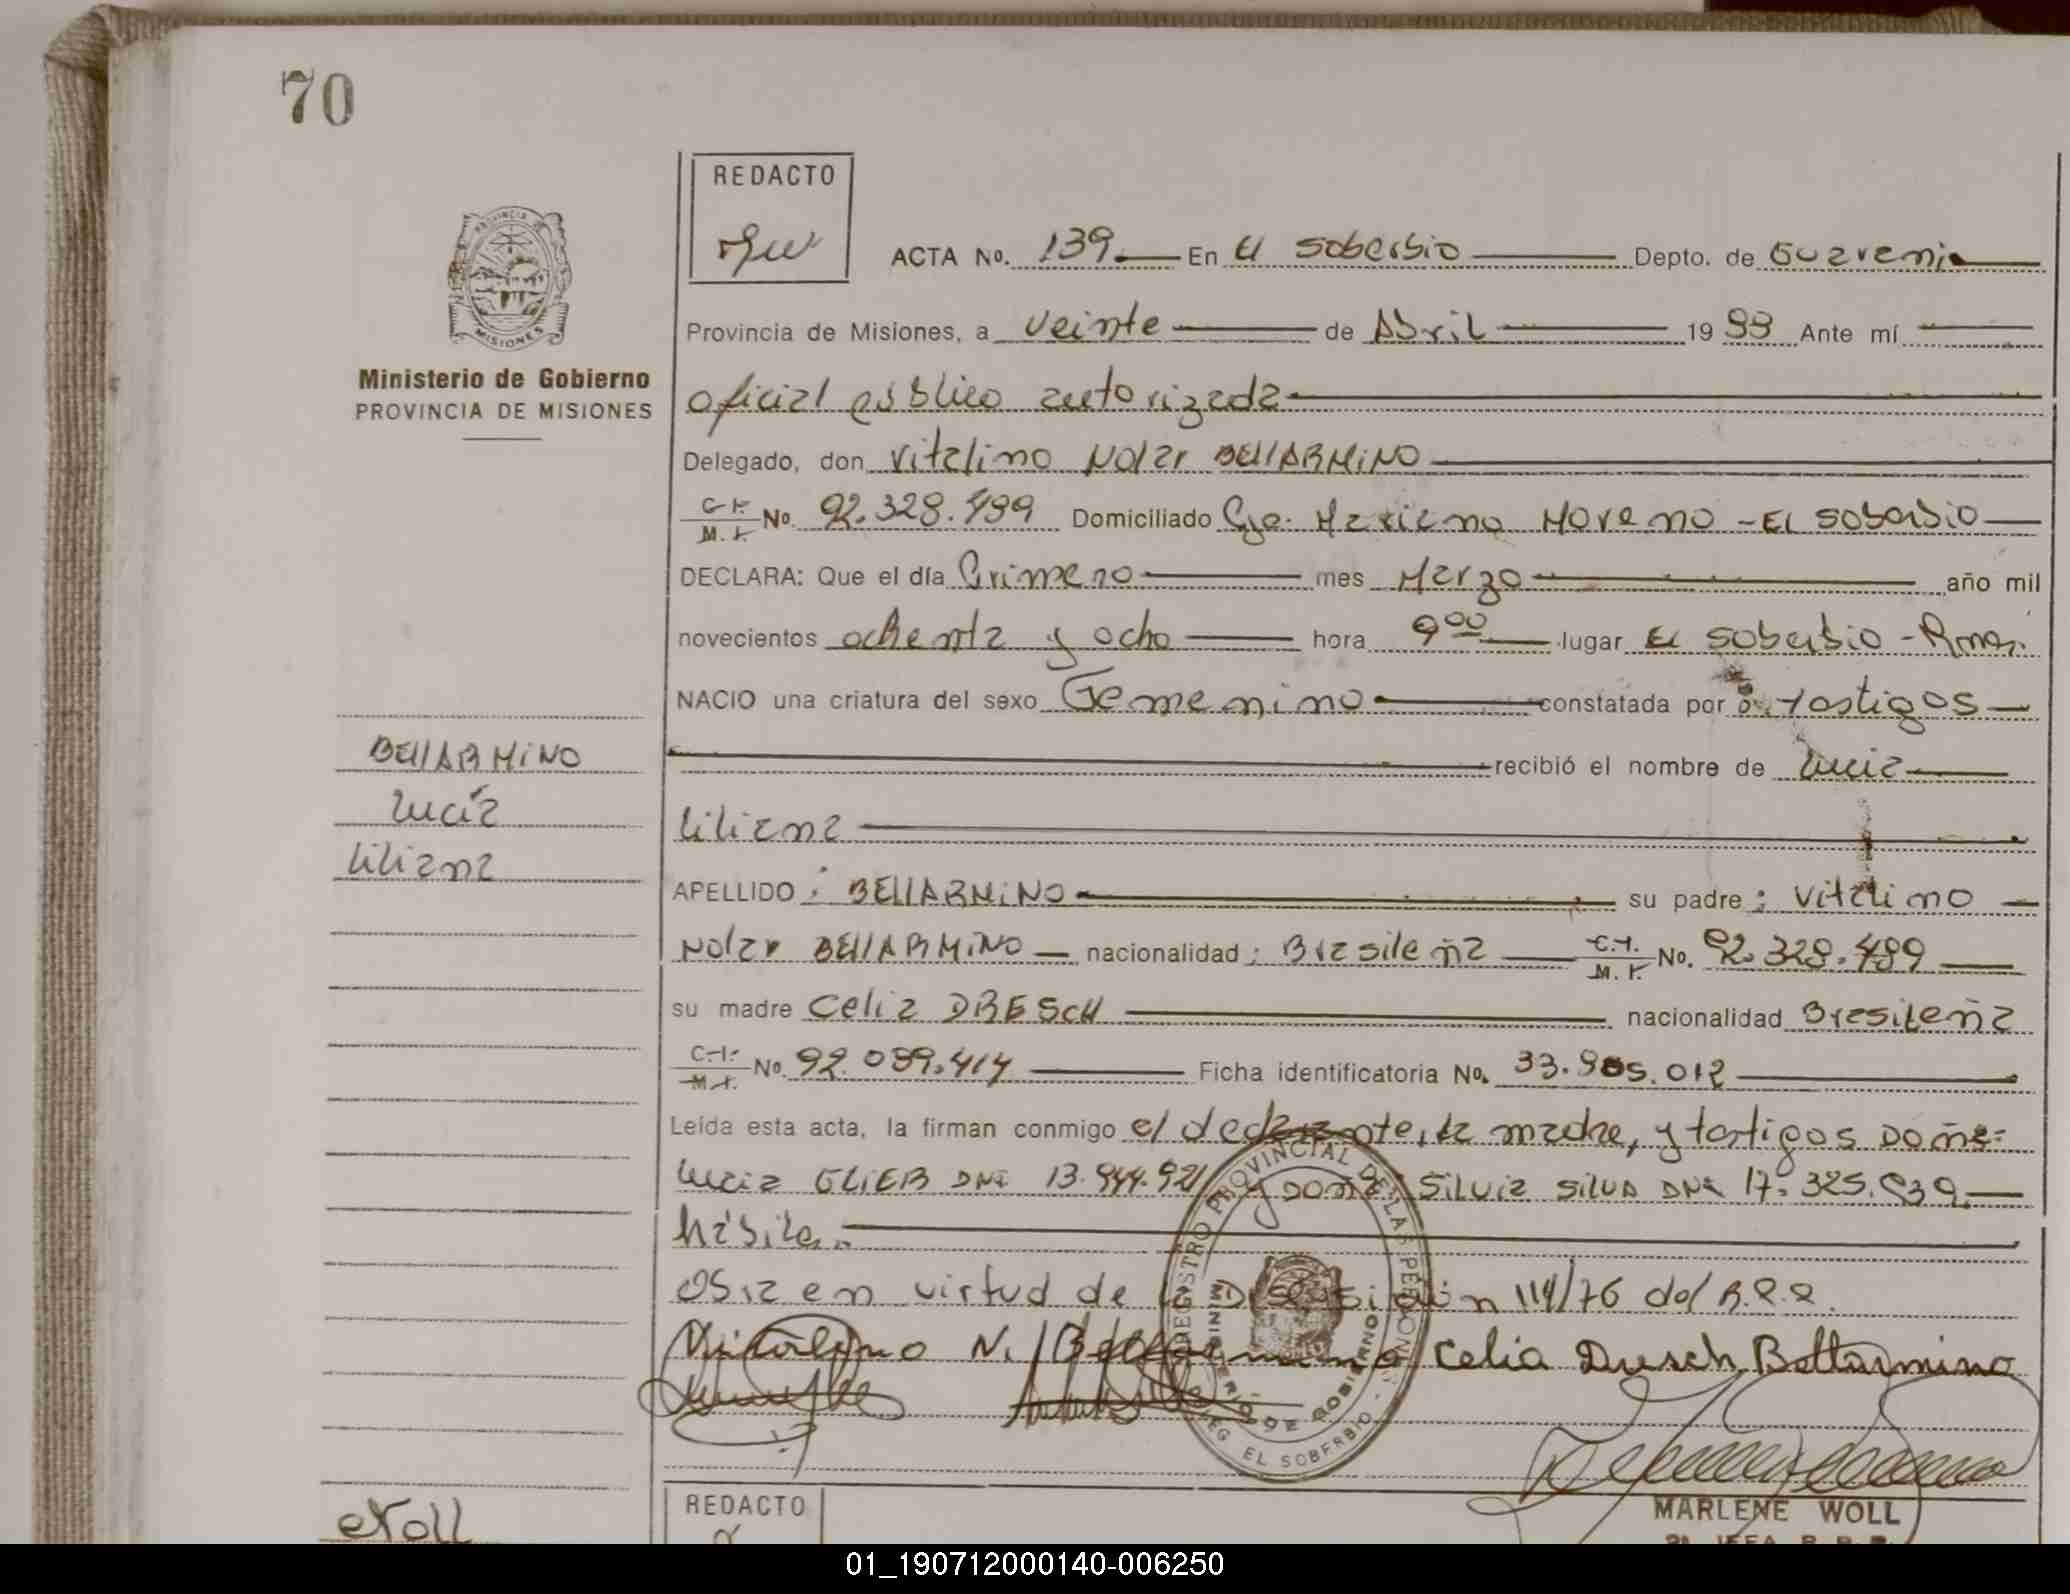 70
REDACTO
ACTA No. 139 En El Soberbio Depto. de Guarani
Provincia de Misiones, a veinte de Abril 1988 Ante mí
oficial público autorizada
Delegado, don Vitalino Nolar BELLARMINO
C.I. M.I. No. 92.328.489 Domiciliado Cja. Mariano Moreno - El Soberbio
DECLARA: Que el día Primero mes Marzo año mil
novecientos ochenta y ocho hora 9 00 lugar El Soberbio -
NACIO una criatura del sexo Femenino constatada por testigos
recibió el nombre de Lucia
Liliana
APELLIDO: BELLARMINO su padre: Vitalino
Nolar BELLARMINO nacionalidad: Brasileña C.I. M.I. No. 92.328.489
su madre Celia DRESCH nacionalidad Brasileña
C.I. M.I. No. 92.089.414 Ficha identificatoria No. 33.985.012
Leída esta acta, la firman conmigo el declarante, la madre, y testigos Doña
Lucia GLIER DNI 13.944.921 y Doña Silvia SILVA DNI 17.325.839
hábiles.
en virtud de la Disposición 114/76 del R.P.P.
Vitalino N. Bellarmino Celia Dresch Bellarmino
MARLENE WOLL
PROVINCIA DE MISIONES
Ministerio de Gobierno
PROVINCIA DE MISIONES
BELLARMINO
Lucía
Liliana
REGISTRO PROVINCIAL DE LAS PERSONAS
MINISTERIO DE GOBIERNO
EL SOBERBIO
REDACTO
01_190712000140-006250